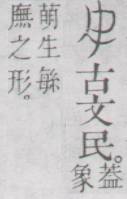 古文民。葢象
萌生緐
廡之形。